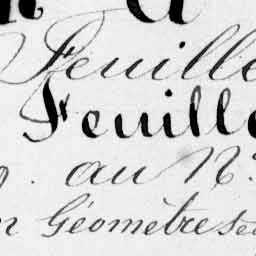 Feuille
Feuille
au N°
Géomètre se